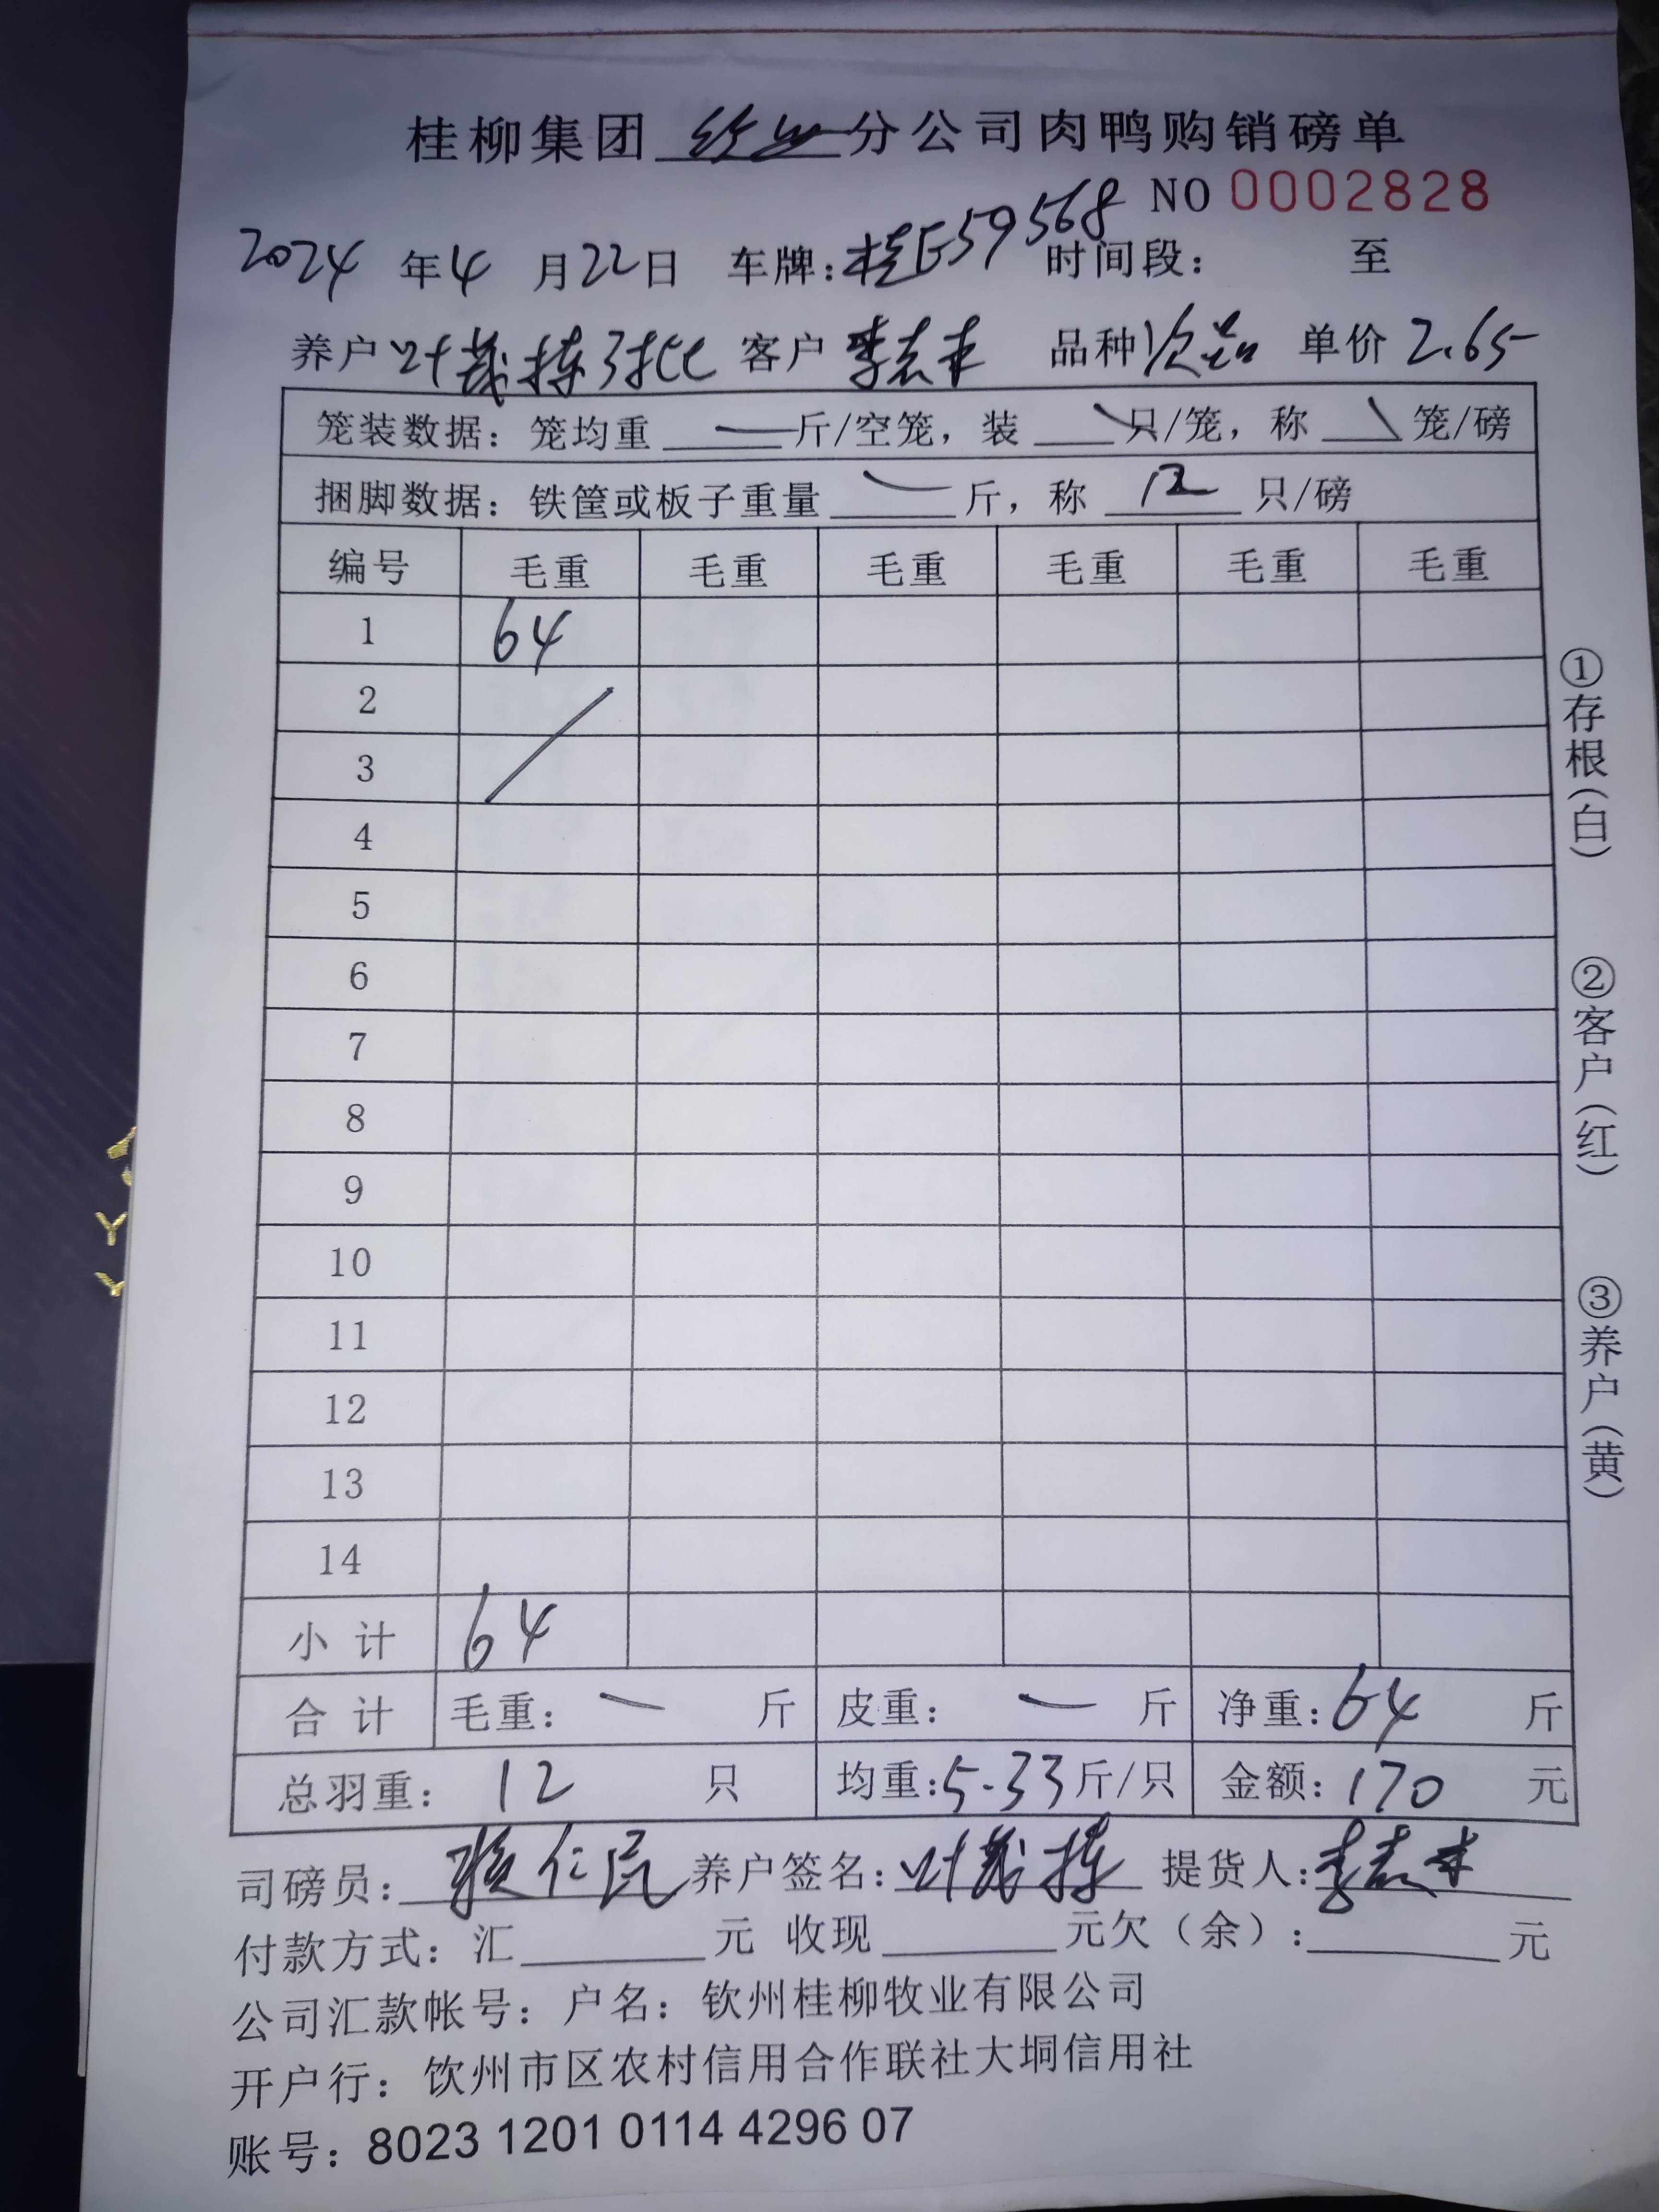 桂柳集团 分公司肉鸭购销磅单
NO 0002828
2024 年 4 月 22 日 车牌：桂E59568 时间段： 至
养户 叶茂栋 客户 李志来 品种 次品 单价 2.65
笼装数据：笼均重 — 斤/空笼，装 \ 只/笼，称 \ 笼/磅
捆脚数据：铁筐或板子重量 — 斤，称 12 只/磅
编号 毛重 毛重 毛重 毛重 毛重 毛重
1 64
2
3
4
5
6
7
8
9
10
11
12
13
14
小计 64
合计 毛重： — 斤 皮重： — 斤 净重：64 斤
总羽重： 12 只 均重：5.33 斤/只 金额：170 元
司磅员： 仁民 养户签名：叶茂栋 提货人：李志来
付款方式：汇 元 收现 元欠（余）： 元
公司汇款帐号：户名：钦州桂柳牧业有限公司
开户行：钦州市区农村信用合作联社大垌信用社
账号：8023 1201 0114 4296 07
①存根（白）
②客户（红）
③养户（黄）